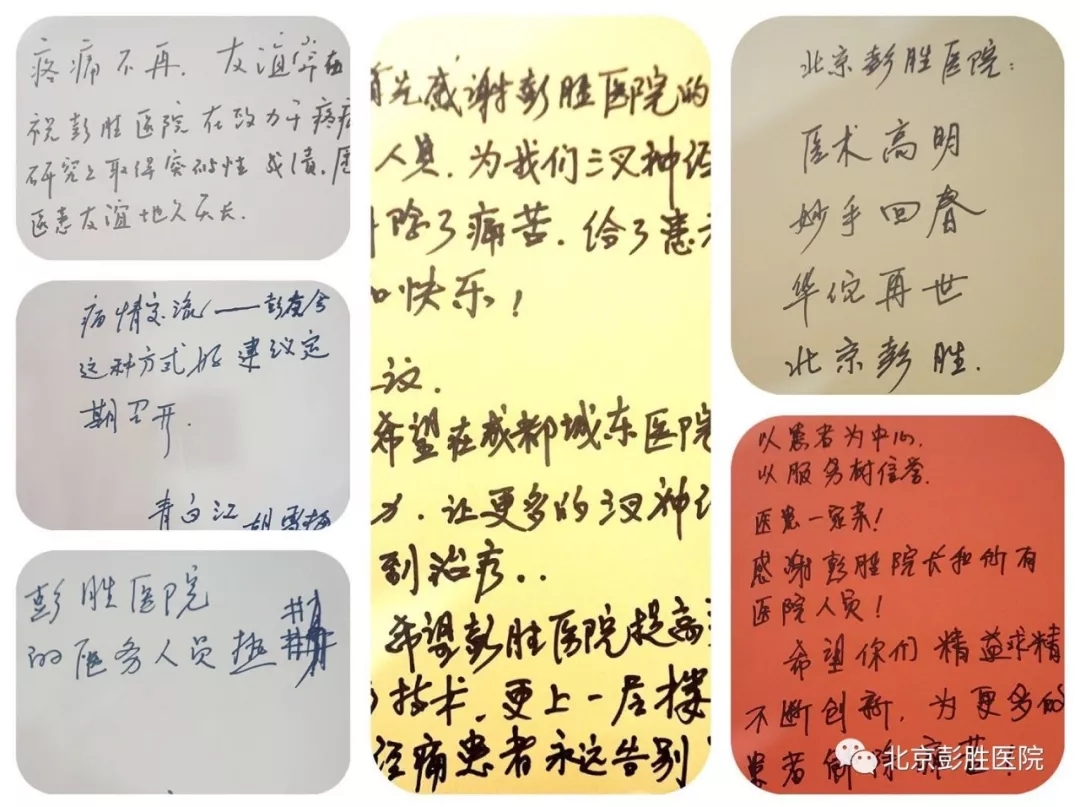 疼痛不再，友谊常在
祝彭胜医院在致力于疼痛
研究上取得突破性成绩，医
医患友谊地久天长．
病情交流——彭友会
这种方式好 建议定
期召开．
青白江 胡雪梅
彭胜医院
的医务人员热情
首先感谢彭胜医院的
人员．为我们三叉神经
除了痛苦．给了患者
和快乐！
议．
希望在成都城东医院
力．让更多的三叉神经
到治疗．．
希望彭胜医院提高
技术．更上一层楼
经痛患者永远告别
北京彭胜医院：
医术高明
妙手回春
华佗再世
北京彭胜．
以患者为中心．
以服务树信誉．
医患一家亲！
感谢彭胜院长和所有
医院人员！
希望你们精益求精
不断创新，为更多的
患者解除痛苦！
北京彭胜医院